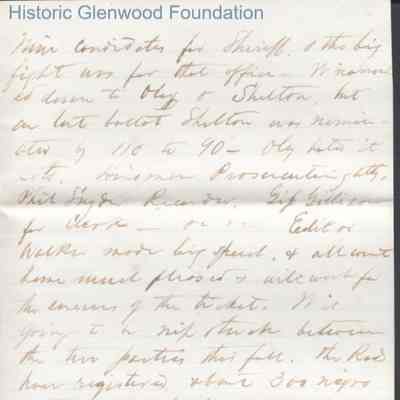 Historic Glenwood Foundation
Nine candidates for Sheriff, & the big
fight was for that office — Winnow
ed down to Oley & Shelton, but
on last ballot Shelton was nomin
ated by 110 to 90 — Oley
Prosecuting Atty.
Phil Snyder Recorder.
for Clerk —
Walker made big speech, & all went
home much pleased & will work for
the success of the ticket. It is
going to be nip & tuck between
the two parties this fall. The Rads
have registered about 300 negro